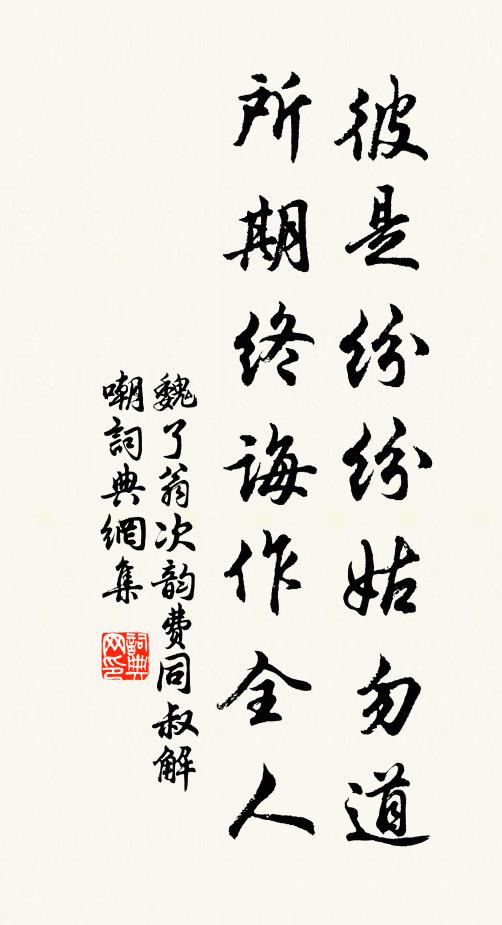 彼是紛紛姑勿道
所期終誨作全人
魏了翁次韵費同叔解
嘲詞典網集
詞典
网印